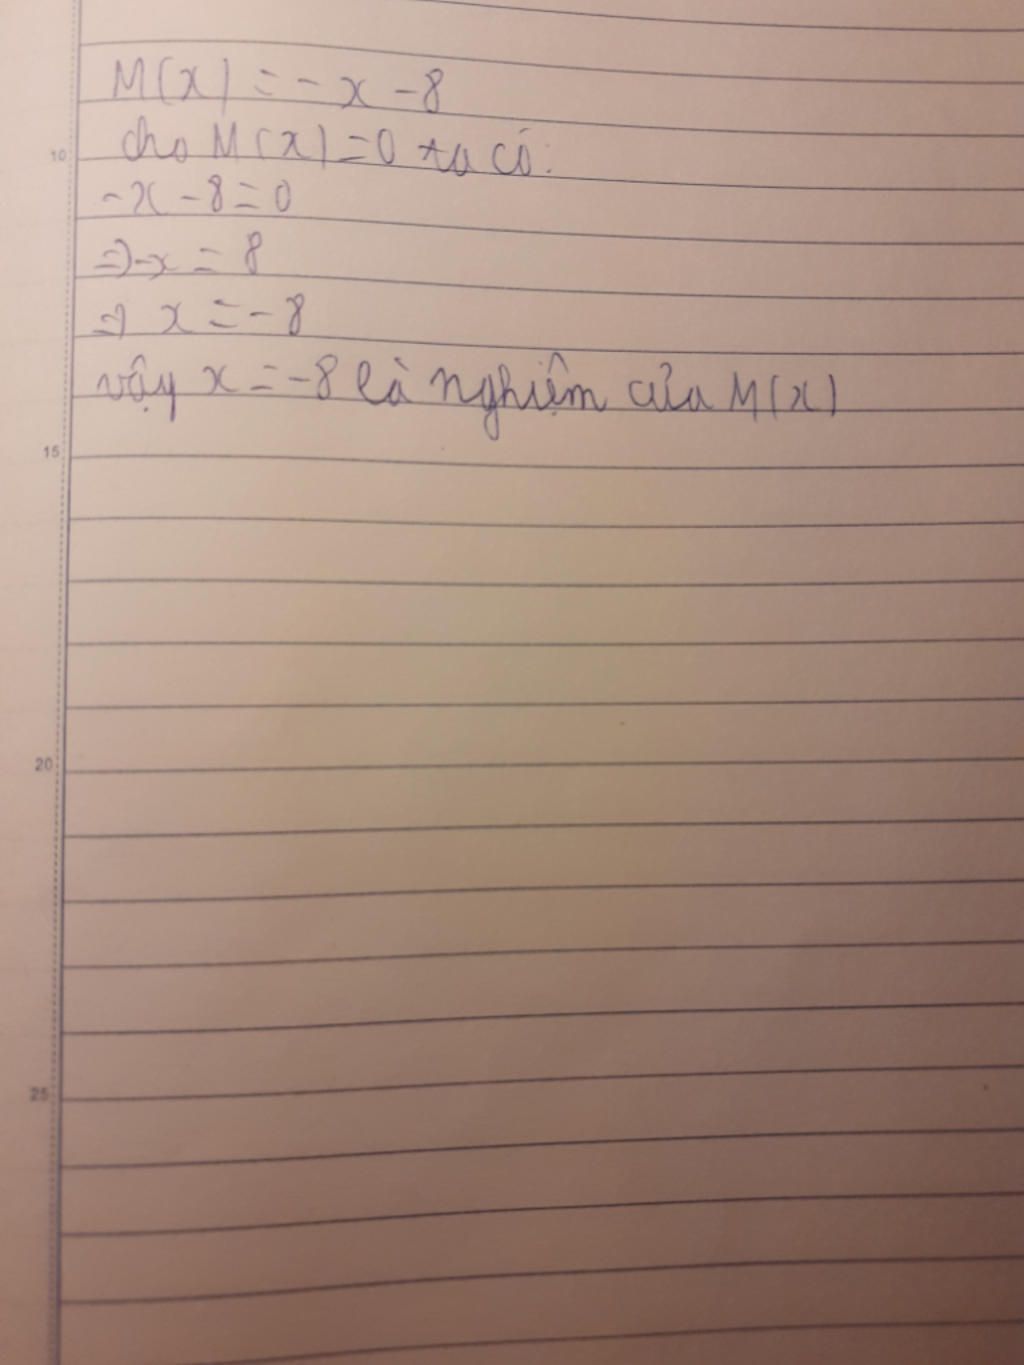 M(x) = - x - 8
cho M(x) = 0 ta có:
10
-x - 8 = 0
=> -x = 8
=> x = - 8
vậy x = -8 là nghiệm của M(x)
15
20
25